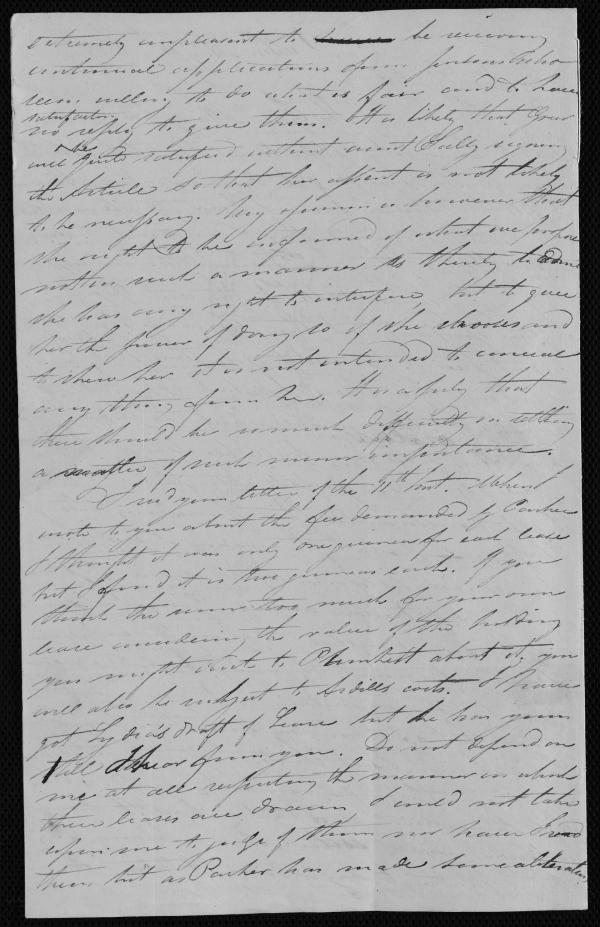 extremely unpleasant to be receiving
continual applications from persons who
seem willing to do what is fair and to have
satisfactory
no reply to give them. It is likely that your
will be quite satisfied without aunt Sally signing
the Article so that her assent is not likely
to be necessary. My opinion is however that
she ought to be informed of what we propose
not in such a manner as thereby to admit
she has any right to interfere, but to give
her the power of doing so if she chooses and
to shew her it is not intended to conceal
any thing from her. It is a pity that
there should be so much difficulty in settling
a matter of such minor importance.
I recd your letter of the 11th inst. When I
wrote to you about the fee demanded by Parker
I thought it was only one guinea for each lease
but I find it is three guineas each. If you
think the sum too much for your own
lease considering the value of the holding
you might write to Plunkett about it. you
will also be subject to costs. I have
got Lydia's draft of Lease but he has yours
till I hear from you. Do not depend on
me at all respecting the manner in which
these leases are drawn I could not take
upon me to judge of them nor have I read
them, but as Parker has made some alterations